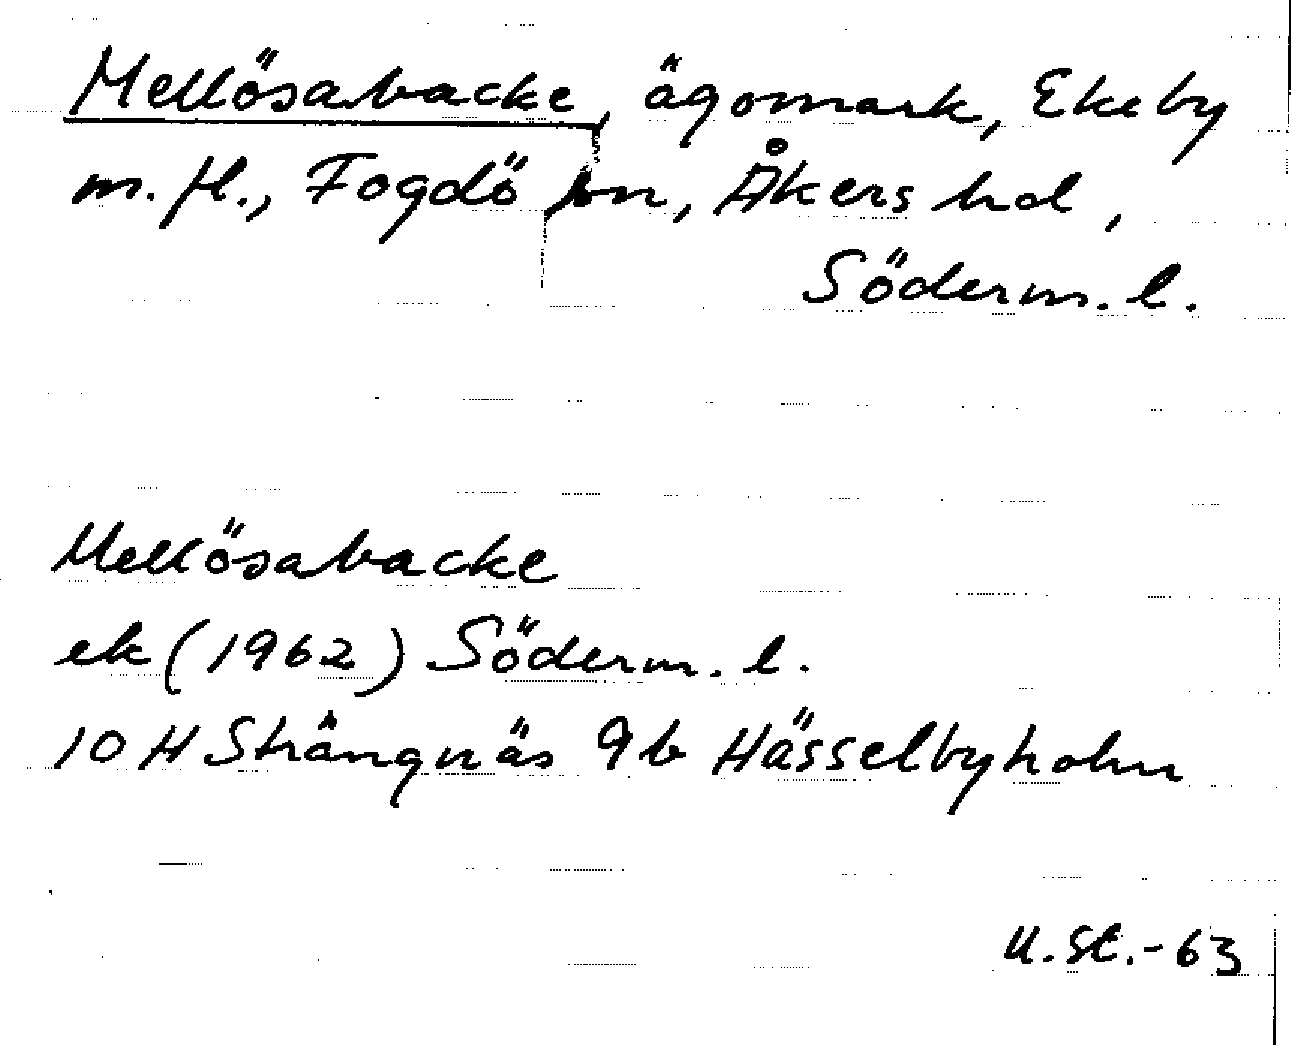 Mellösabacke, ägomark, Ekeby
m.fl., Fogdö sn, Åkers hd,
Söderm. l.
Mellösabacke
ek (1962) Söderm. l.
10 H Strängnäs 9b Hässelbyholm
U.St.-63